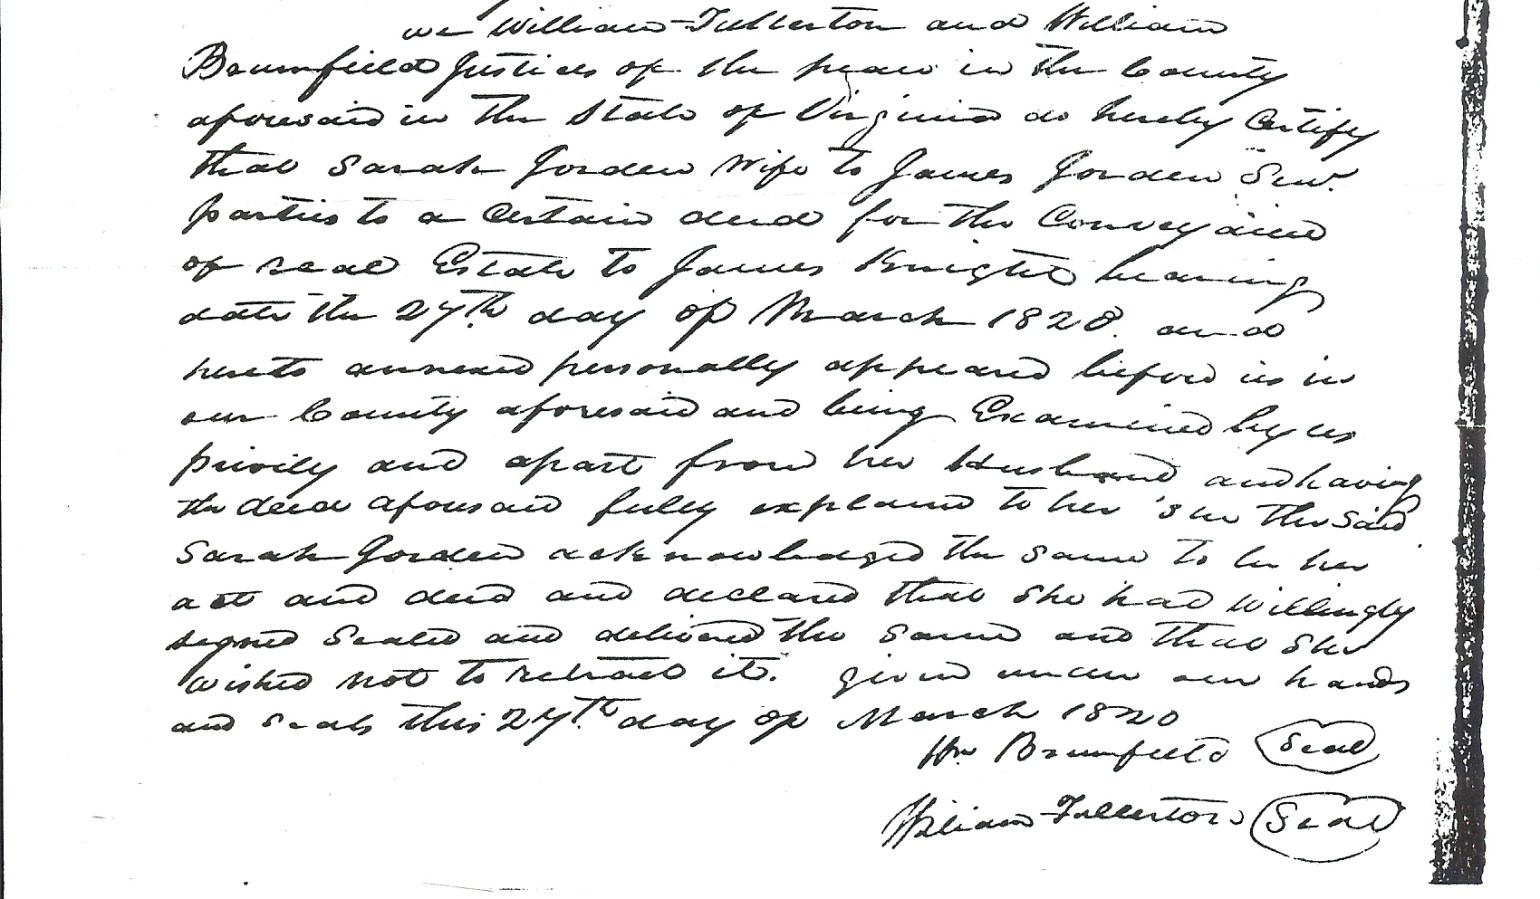 we William Fullerton and William
Brumfield Justices of the peace in the County
aforesaid in the State of Virginia do hereby Certify
that Sarah Jorden Wife to James Jorden Senr.
parties to a Certain deed for the Conveyance
of real Estate to James Knight bearing
date the 27th day of March 1820. and
hereto annexed personally appeared before us in
our County aforesaid and being Examined by us
privily and apart from her Husband and having
the deed aforesaid fully explained to her she the said
Sarah Jorden acknowledged the same to be her
act and deed and declared that she had Willingly
signed Sealed and delivered the same and that She
wished not to retract it. given under our hands
and seals this 27th day of March 1820
Wm Brumfield Seal
William Fullerton Seal